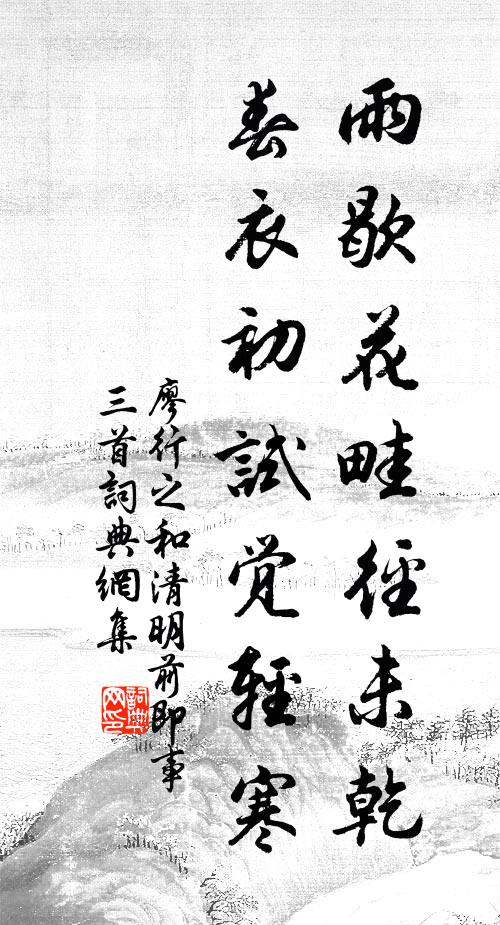 雨歇花畦徑未乾
春衣初試覺輕寒
廖行之和清明前即事
三首詞典網集